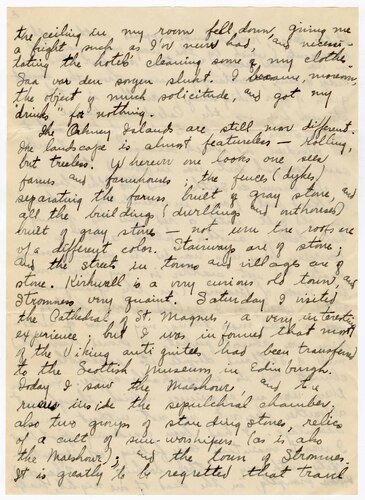 the ceiling in my room fell down, giving me
a fright such as I'v never had, and necessi-
tating the hotel's cleaning some of my clothes.
I became, moreover,
the object of much solicitude, and got my
"drinks" for nothing.
The Orkney Islands are still more different.
The landscape is almost featureless – rolling,
but treeless. Wherever one looks one sees
farms and farmhouses: the fences (dykes)
separating the farms, built of gray stone, and
all the buildings (dwellings and outhouses)
built of gray stone – not even the roofs are
of a different color. Stairways are of stone;
and the street in towns and villages are of
stone. Kirkwall is a very curious old town, and
Stromness very quaint. Saturday I visited
the Cathedral of St. Magnus, a very interesting
experience, but I was informed that most
of the Viking antiquities had been transferred
to the Scottish Museum in Edinburgh.
Today I saw the Maeshowe, and the
runes inside the sepulchral chamber,
also two groups of standing stones, relics
of a cult of sun-worshipers (as is also
the Maeshowe); and the town of Stromness.
It is greatly to be regretted that travel